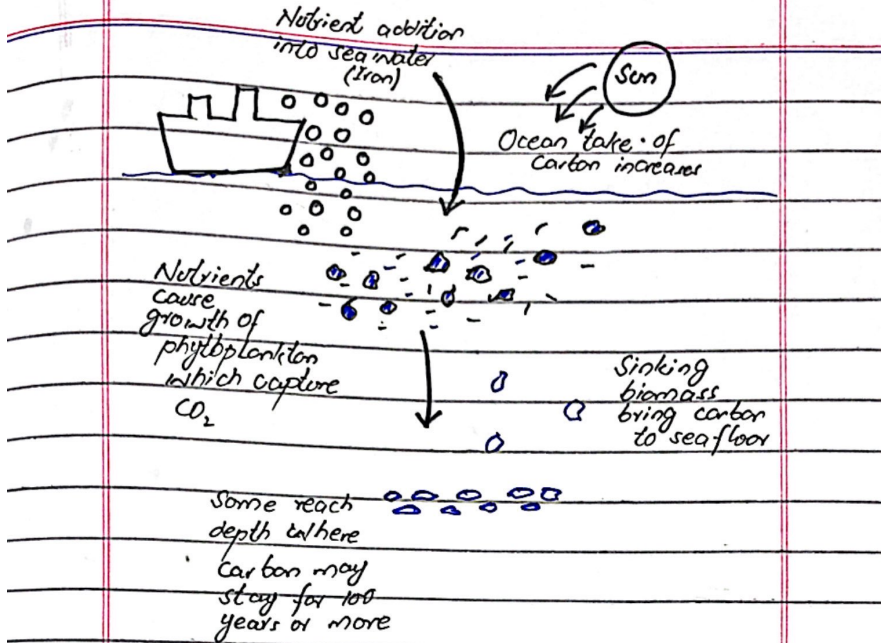 Nutrient addition
into sea water
(Iron)
Sun
Ocean take of
carbon increases
Nutrients
cause
growth of
phytoplankton
which capture
CO2
Sinking
biomass
bring carbon
to seafloor
Some reach
depth where
carbon may
stay for 100
years or more